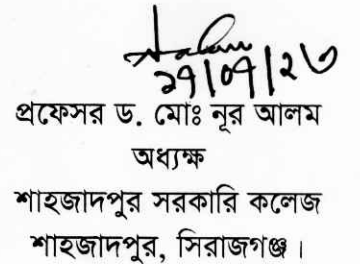 ২৭/০৭/২৩
প্রফেসর ড. মোঃ নূর আলম
অধ্যক্ষ
শাহজাদপুর সরকারি কলেজ
শাহজাদপুর, সিরাজগঞ্জ।